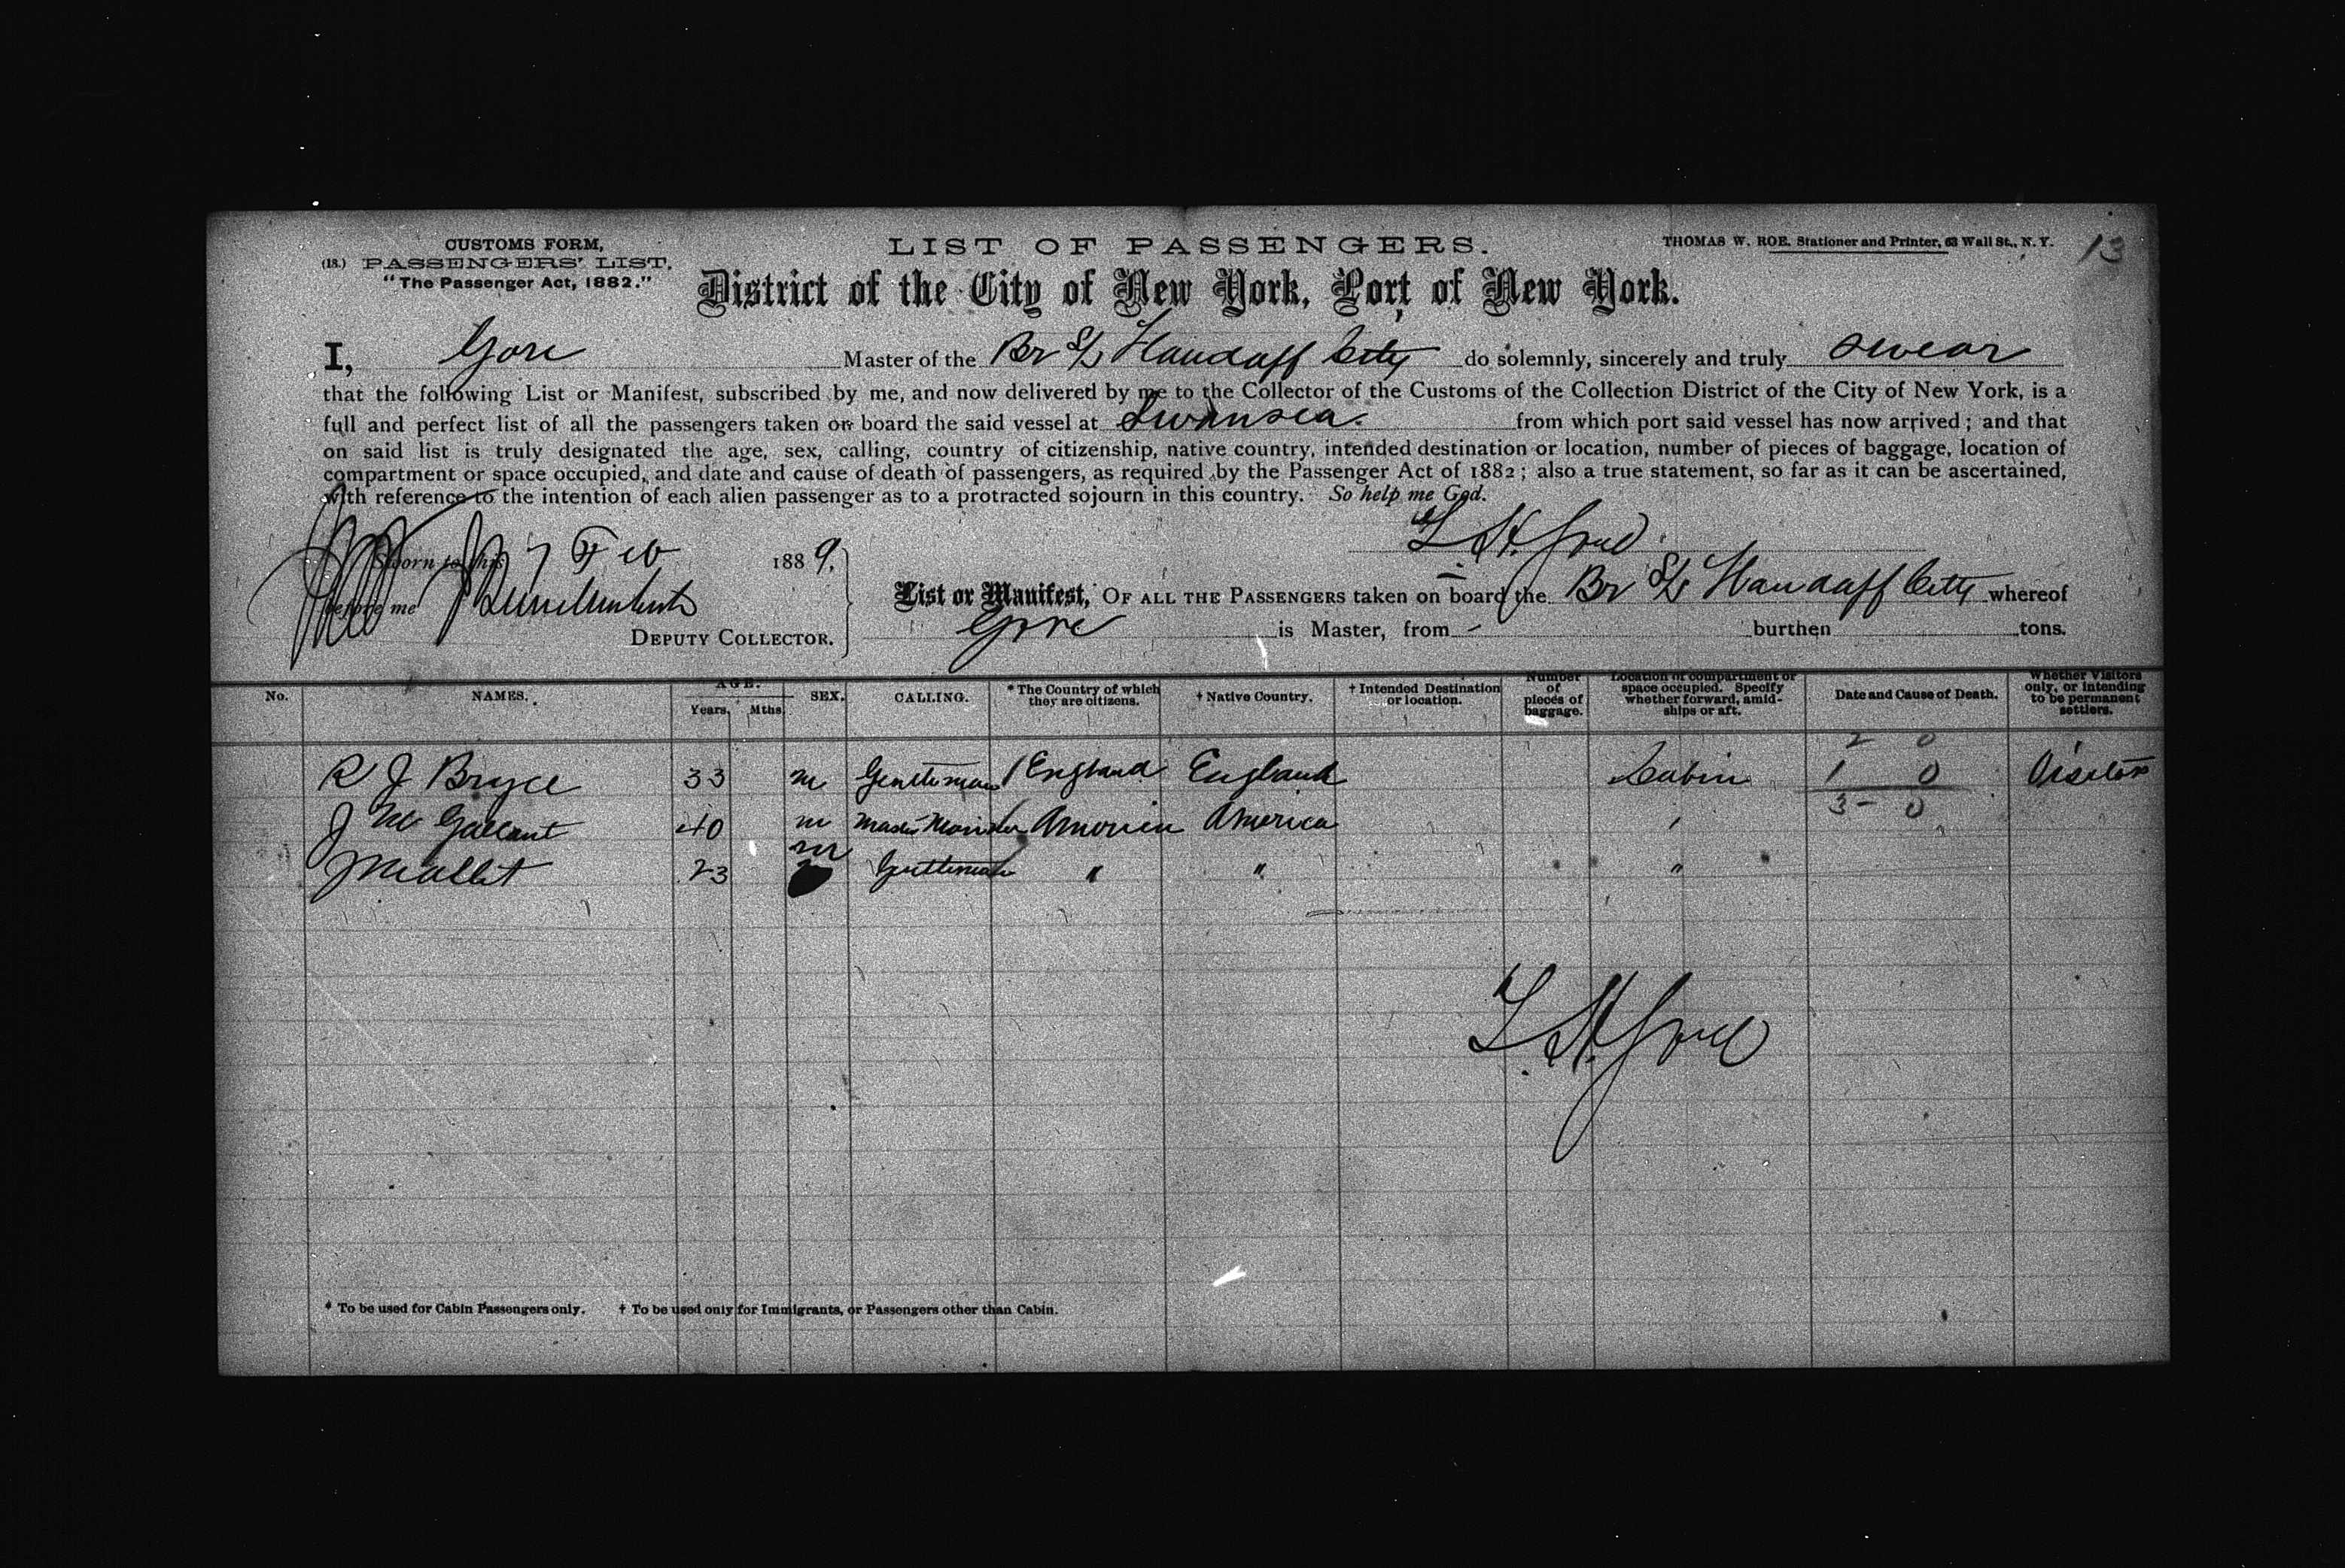 CUSTOMS FORM,
(18.) PASSENGERS' LIST,
"The Passenger Act, 1882."
LIST OF PASSENGERS.
THOMAS W. ROE, Stationer and Printer, 63 Wall St., N. Y.
13
District of the City of New York, Port of New York.
I, Gore Master of the Br S/S Llandaff City do solemnly, sincerely and truly swear
that the following List or Manifest, subscribed by me, and now delivered by me to the Collector of the Customs of the Collection District of the City of New York, is a
full and perfect list of all the passengers taken on board the said vessel at Swansea. from which port said vessel has now arrived; and that
on said list is truly designated the age, sex, calling, country of citizenship, native country, intended destination or location, number of pieces of baggage, location of
compartment or space occupied, and date and cause of death of passengers, as required by the Passenger Act of 1882; also a true statement, so far as it can be ascertained,
with reference to the intention of each alien passenger as to a protracted sojourn in this country. So help me God.
Sworn to this 7 Feb 1889.
before me
DEPUTY COLLECTOR.
List or Manifest, OF ALL THE PASSENGERS taken on board the Br S/S Llandaff City whereof
Gore is Master, from - burthen tons.
No. NAMES. AGE. Years. Mths. SEX. CALLING. * The Country of which they are citizens. † Native Country. † Intended Destination or location. Number of pieces of baggage. Location of compartment or space occupied. Specify whether forward, amidships or aft. Date and Cause of Death. Whether Visitors only, or intending to be permanent settlers.
2 0
R J Bryce 33 m Gentleman England England Cabin 1 0 Visitor
3 - 0
J Mc Gallant 40 m Master Mariner America America "
J Mallet 23 m Gentleman " " "
L. H. Gore
* To be used for Cabin Passengers only. † To be used only for Immigrants, or Passengers other than Cabin.